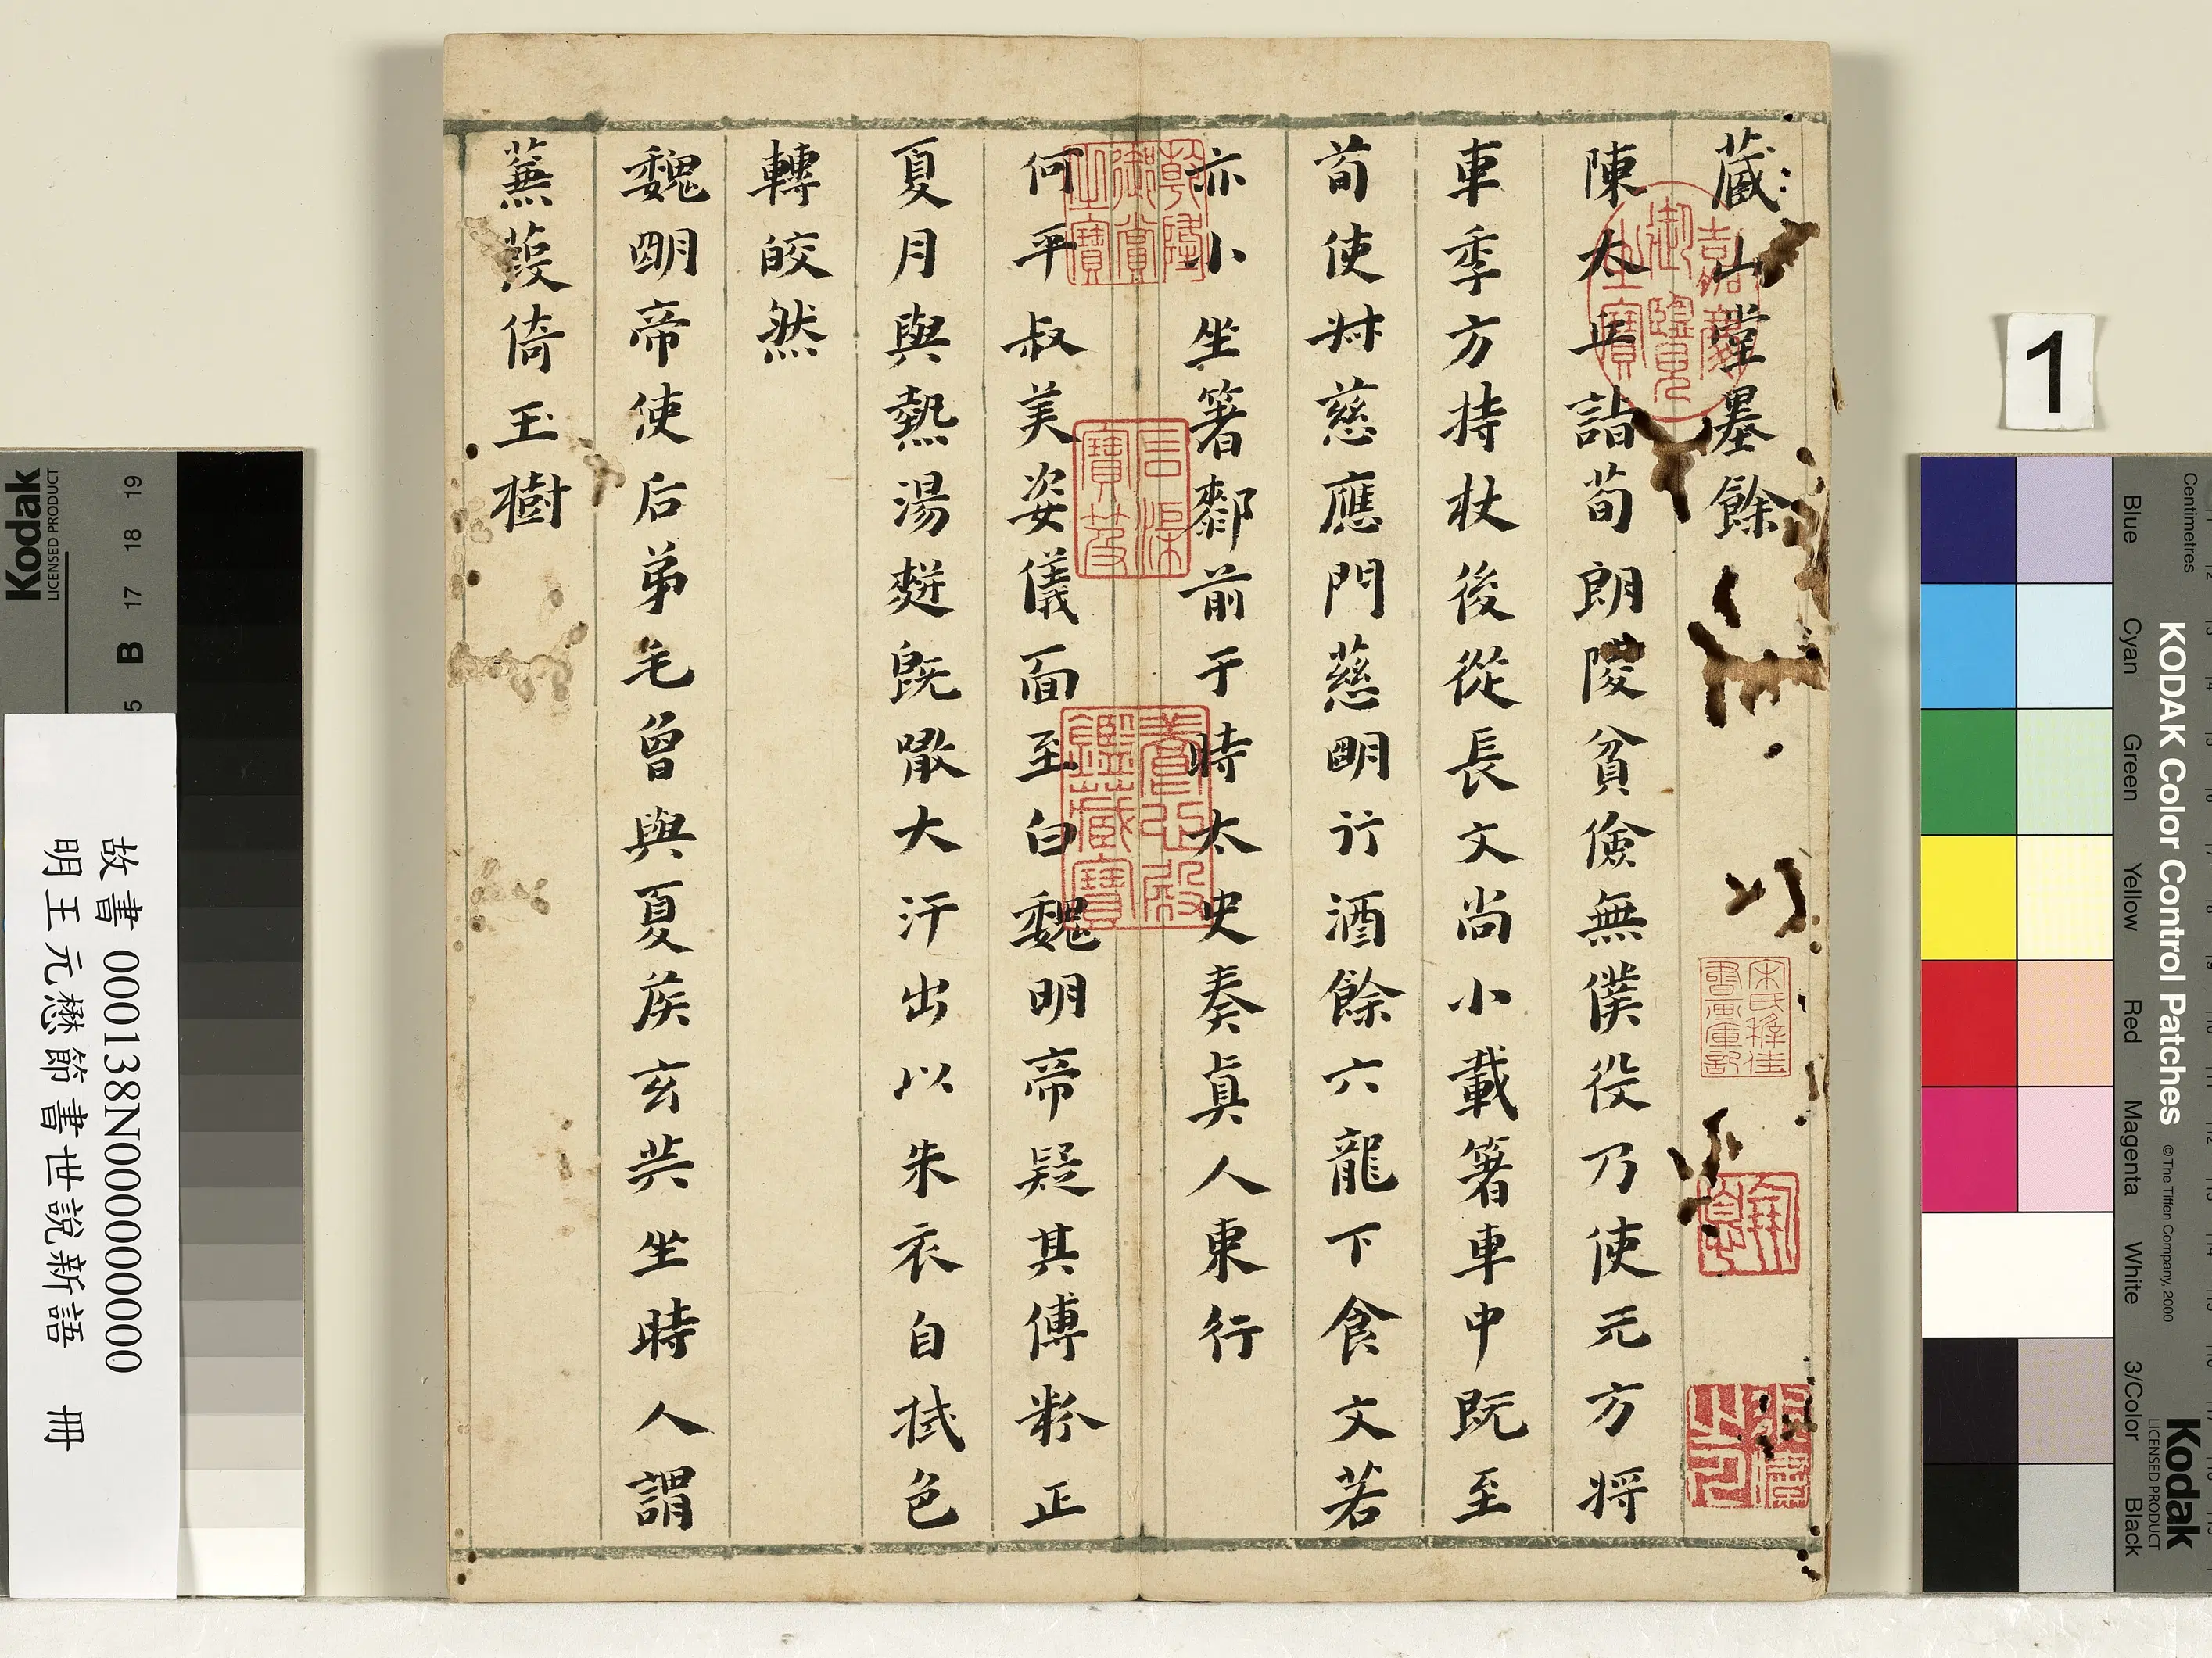 藏山堂墨餘
陳太丘詣荀朗陵貧儉無僕役乃使元方將
車季方持杖後從長文尚小載箸車中既至
荀使叔慈應門慈朙行酒餘六龍下食文若
亦小坐箸厀前于時太史奏眞人東行
何平叔美姿儀面至白魏明帝疑其傅粉正
夏月與熱湯䴵既噉大汗出以朱衣自拭色
轉皎然
魏朙帝使后弟毛曾與夏矦玄共坐時人謂
蒹葭倚玉樹
乾隆御賞之寶
嘉慶御覽之寶
石渠寶笈
養心殿鑑藏寶
宋氏稚佳書画庫記
故書 000138N000000000
明王元懋節書世說新語 冊
1
Kodak
LICENSED PRODUCT
19
18
17
B
KODAK Color Control Patches
© The Tiffen Company, 2000
Kodak
LICENSED PRODUCT
Centimetres
Blue
Cyan
Green
Yellow
Red
Magenta
White
3/Color
Black